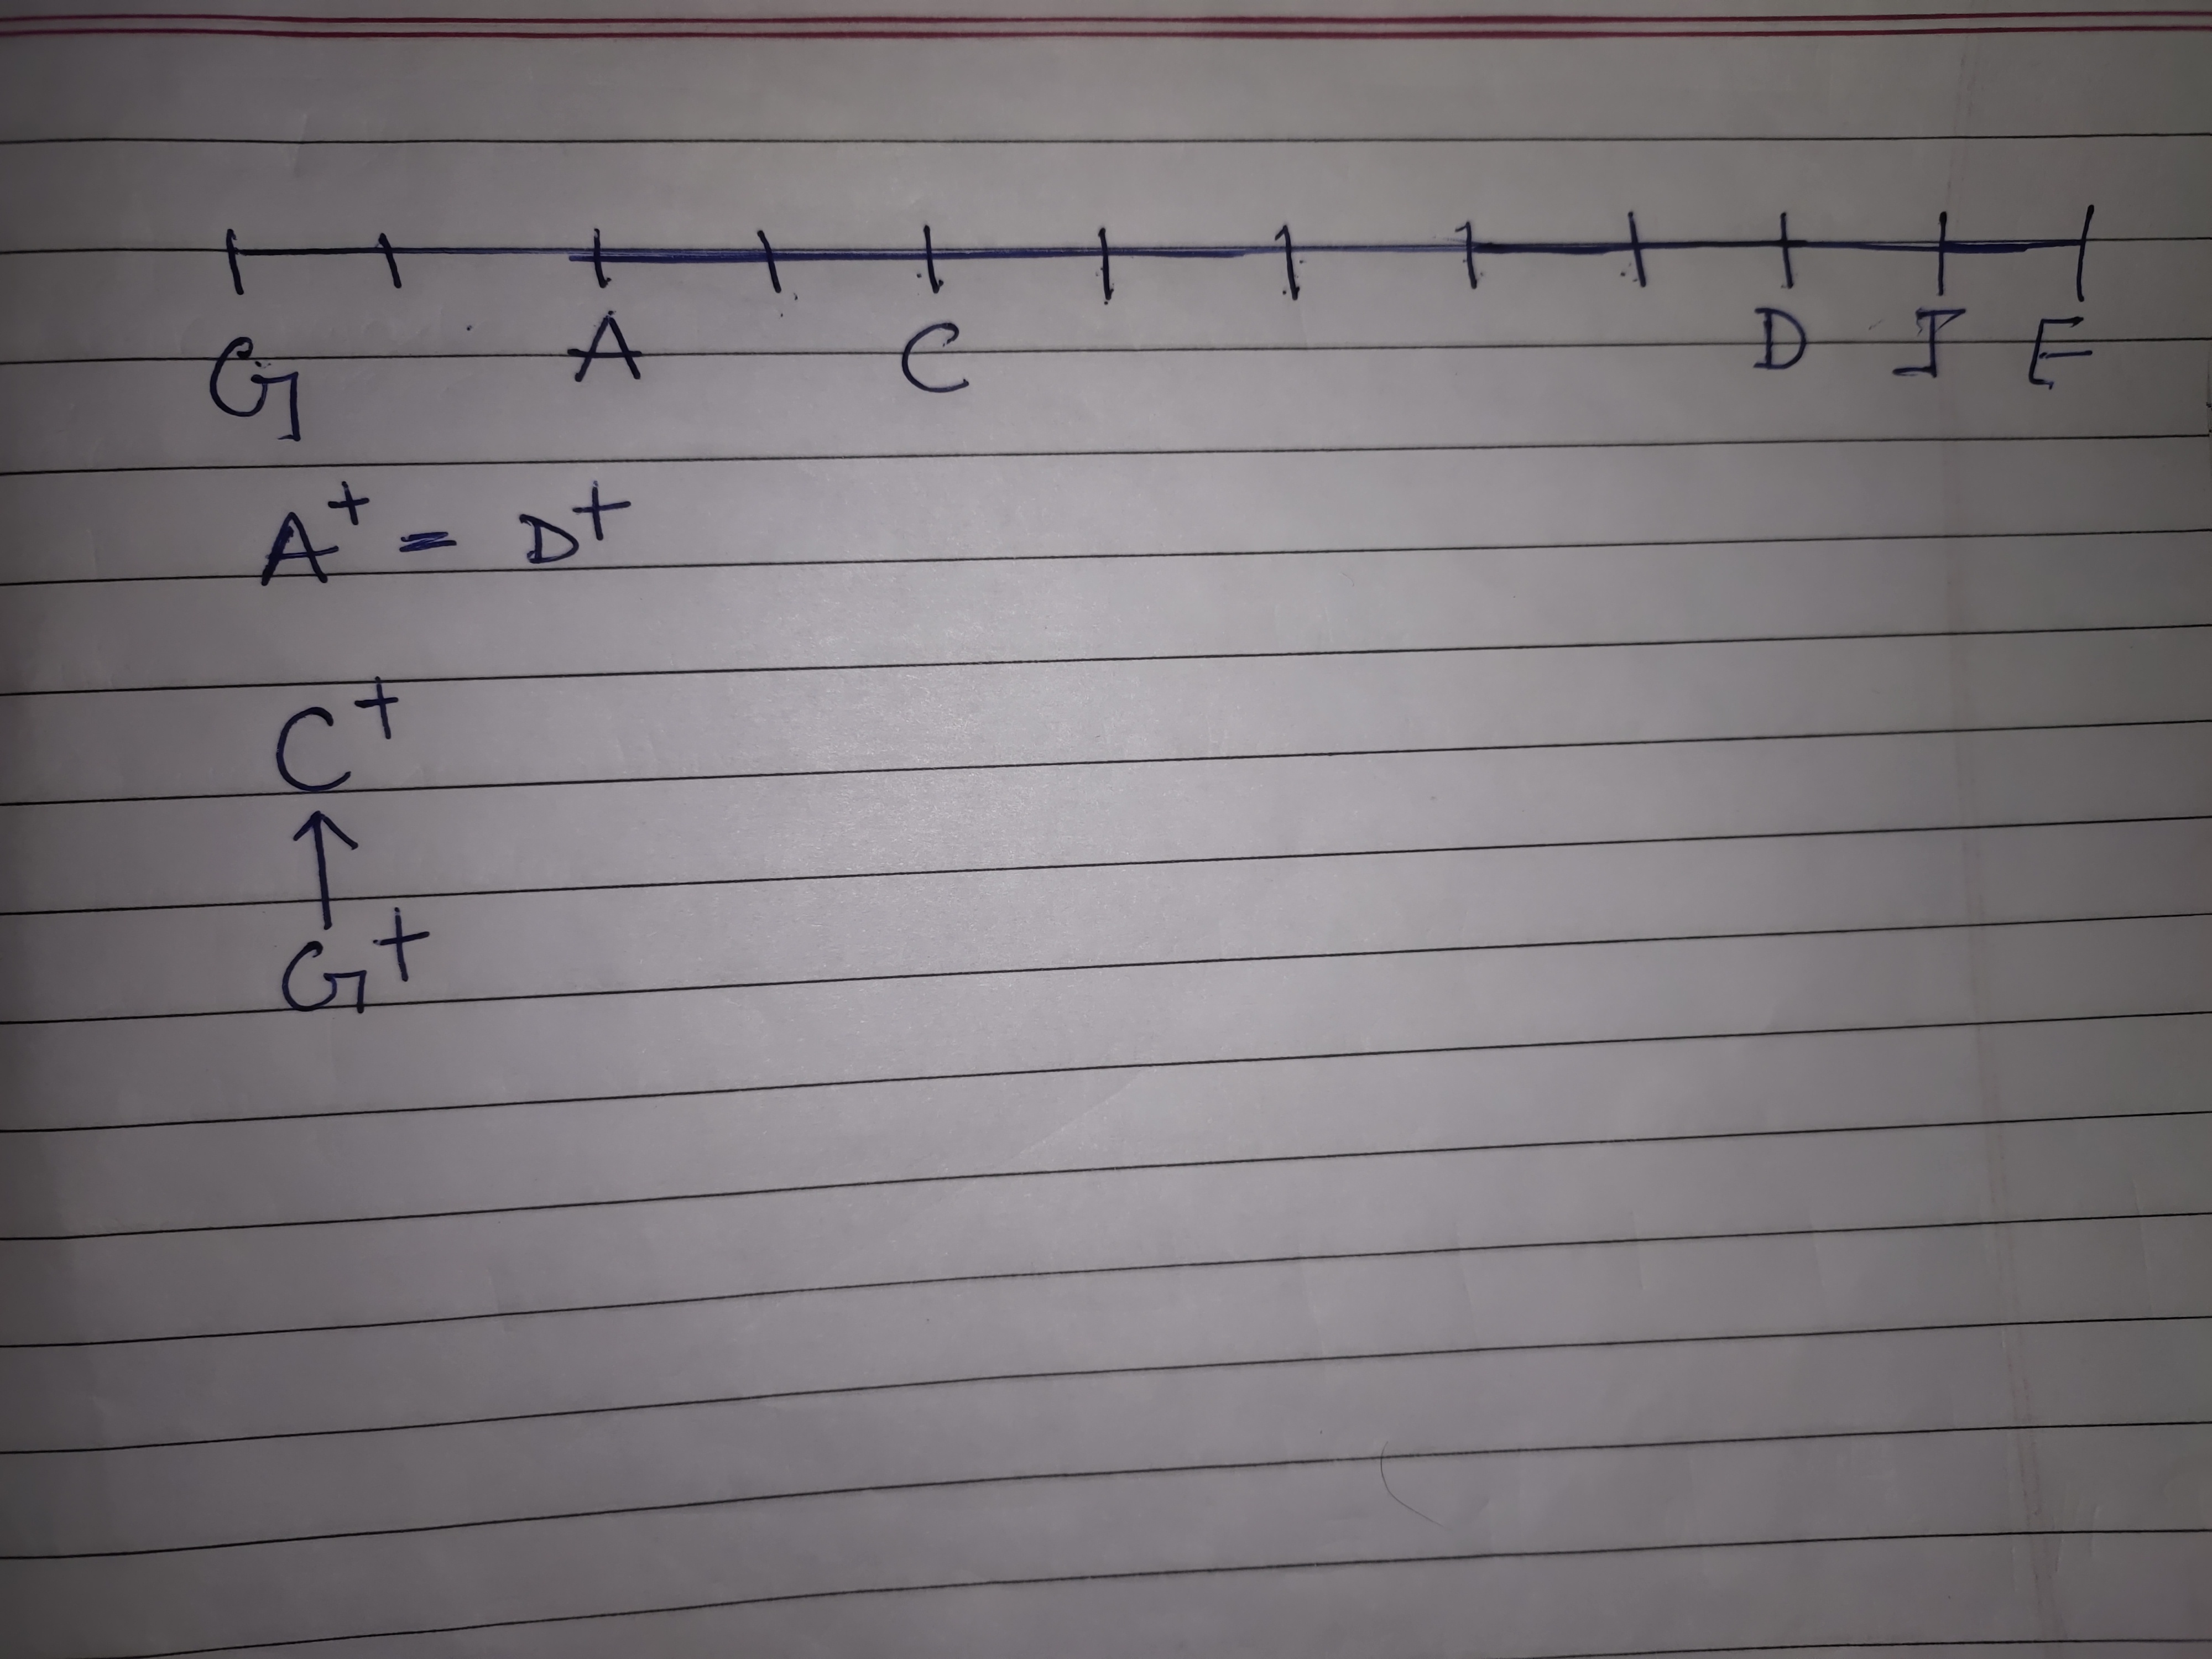 G A C D I E
A⁺ = D⁺
C⁺
↑
G⁺